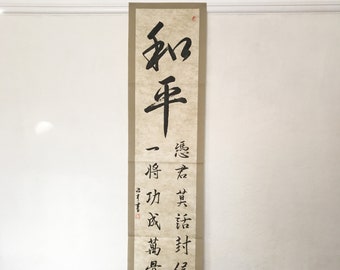 和平
憑君莫話封侯
一將功成萬骨